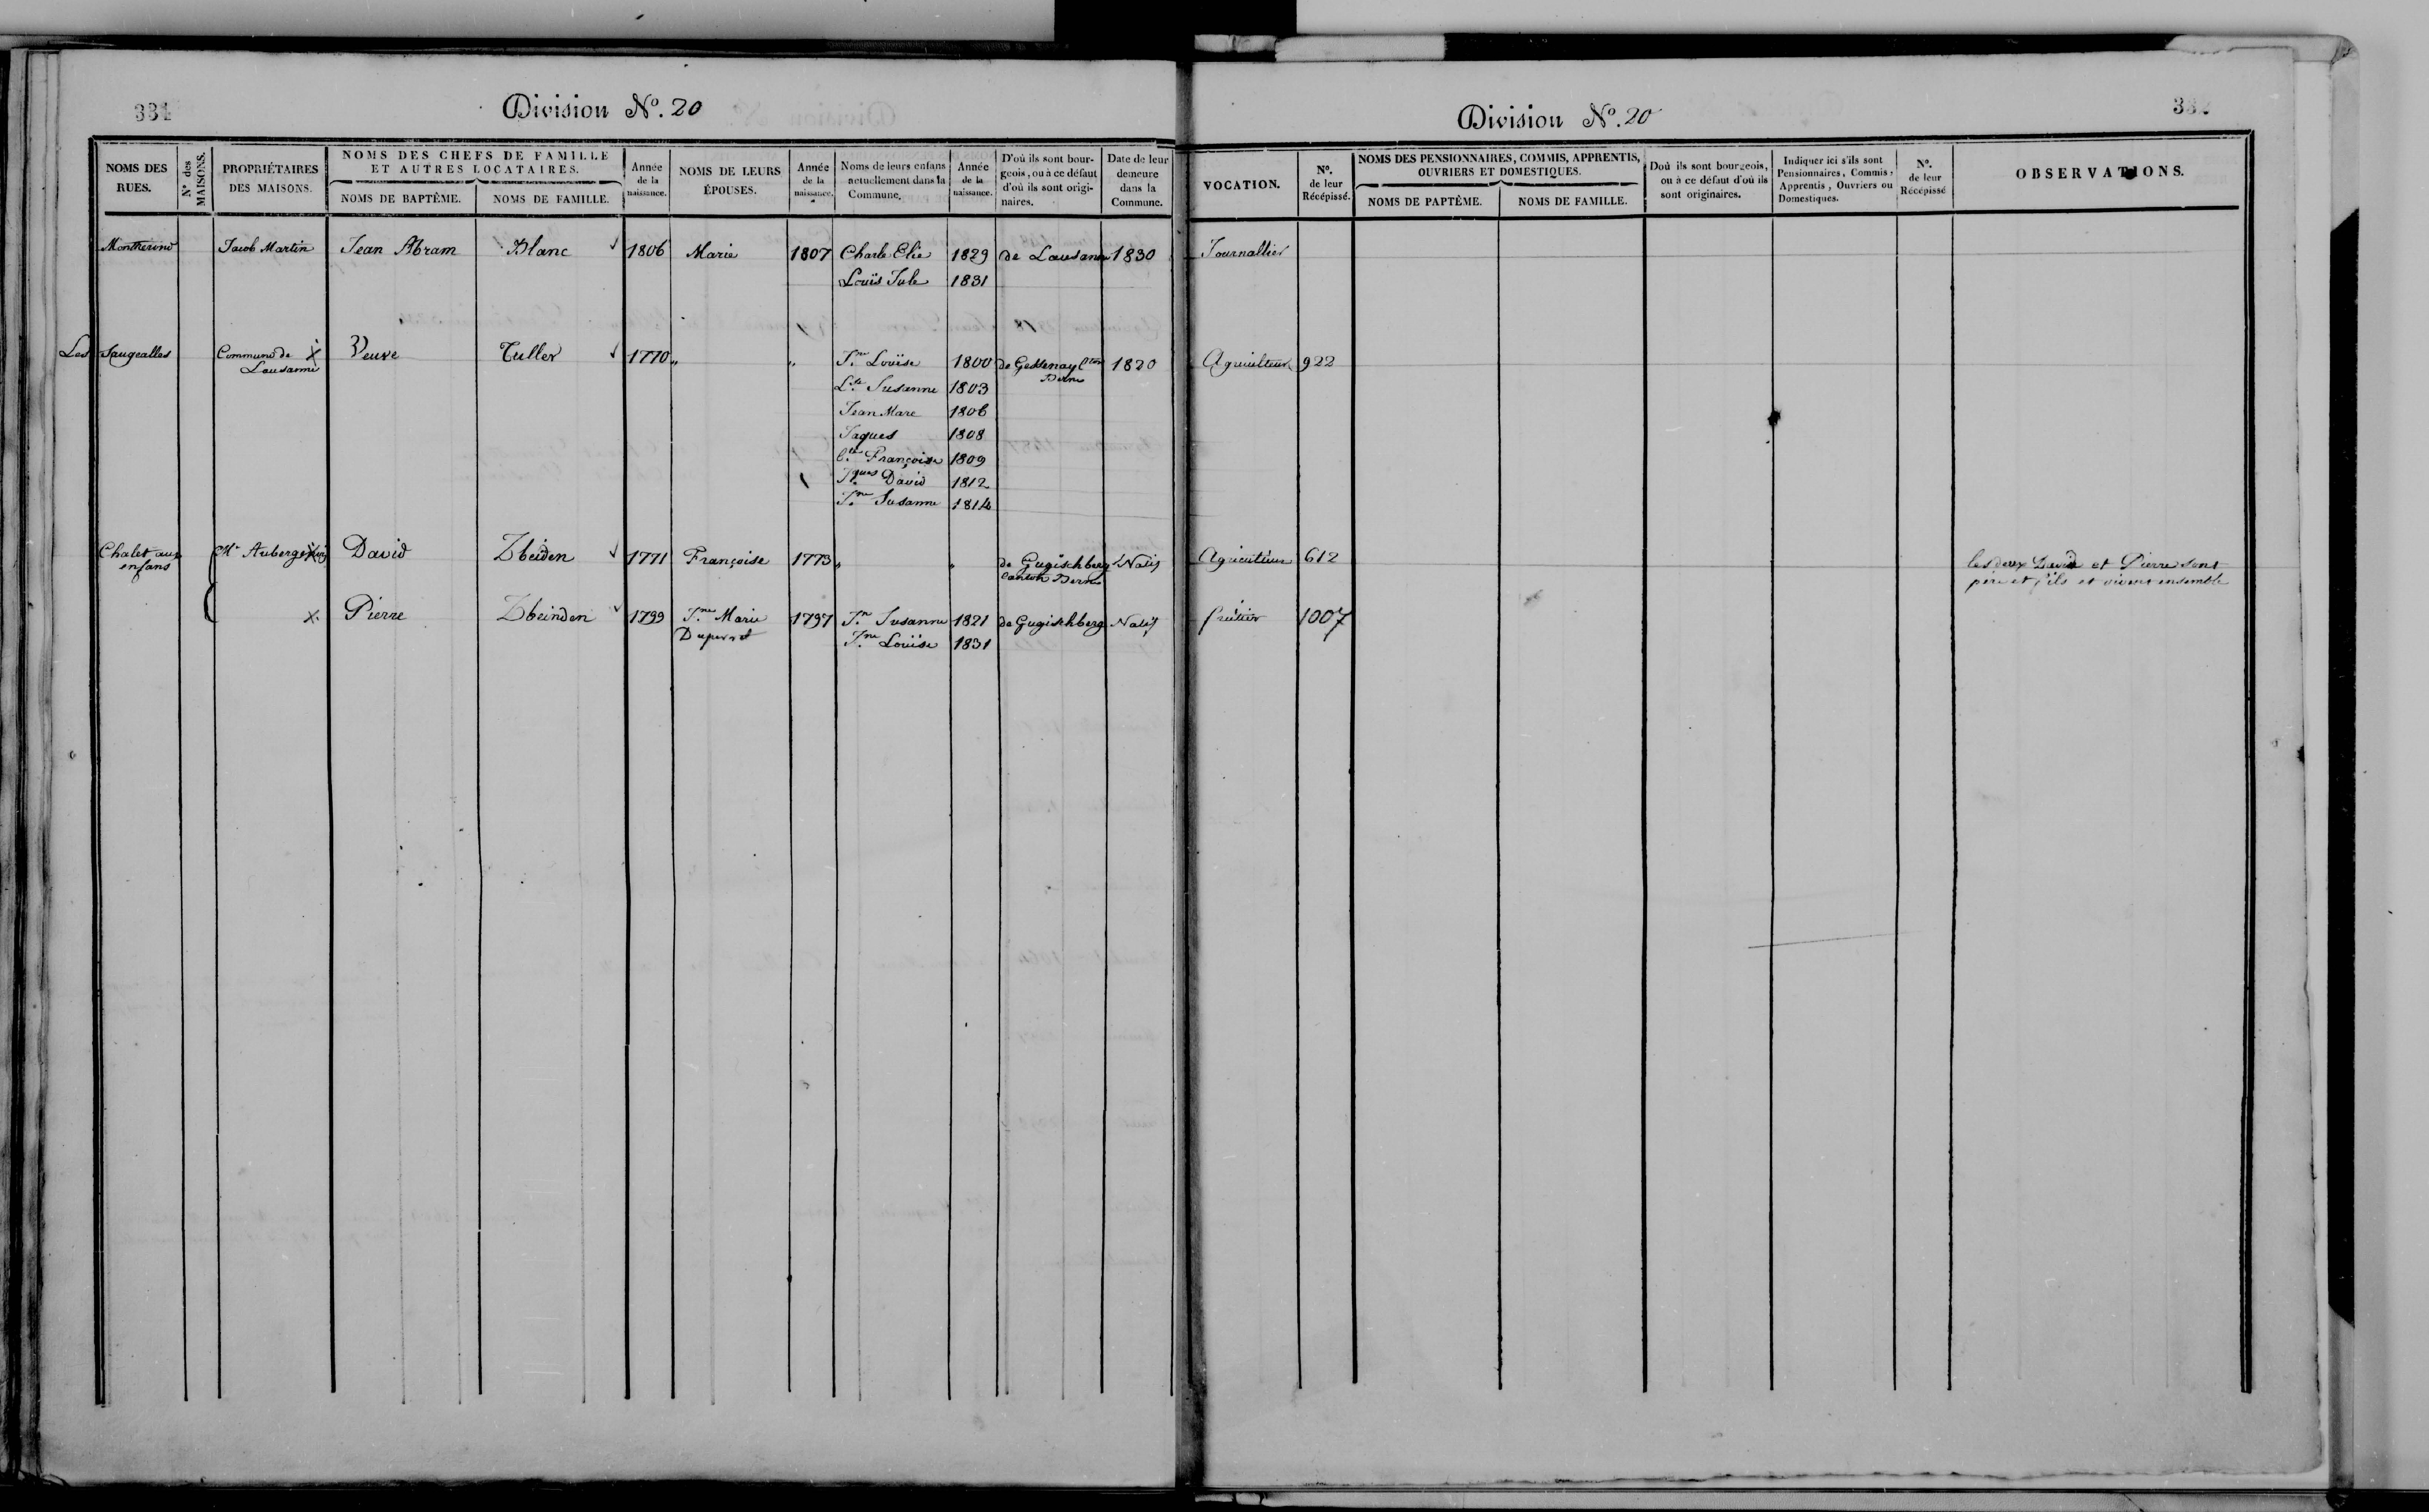 331
Division Nº. 20
NOMS DES RUES.
Nº des MAISONS.
PROPRIÉTAIRES DES MAISONS.
NOMS DES CHEFS DE FAMILLE ET AUTRES LOCATAIRES.
NOMS DE BAPTÊME.
NOMS DE FAMILLE.
Année de la naissance.
NOMS DE LEURS ÉPOUSES.
Année de la naissance.
Noms de leurs enfans actuellement dans la Commune.
Année de la naissance.
D'où ils sont bourgeois, ou à ce défaut d'où ils sont originaires.
Date de leur demeure dans la Commune.
Montheirond Jacob Martin Jean Abram Blanc 1806 Marie 1807 Charle Elie 1829 de Lausanne 1830
Louis Jule 1831
Les Saugealles Commune de Veuve Tuller 1770 " " Jne Louïse 1800 de Gessenay Cton 1820
Lausanne Lse Susanne 1803 Berne
Jean Marc 1806
Jaques 1808
Françoise 1809
Jques David 1812
Jne Susanne 1814
Chalet aux Mr David Zbeiden 1771 Françoise 1773 " " de Gugischberg Natif
enfans Canton Berne
Pierre Zbeinden 1799 Jne Marie 1797 Jn Susanne 1821 de Gugischberg Natif
Dupervet Jne Louïse 1831
Division Nº. 20
332
VOCATION.
Nº. de leur Récépissé.
NOMS DES PENSIONNAIRES, COMMIS, APPRENTIS, OUVRIERS ET DOMESTIQUES.
NOMS DE PAPTÊME.
NOMS DE FAMILLE.
Doù ils sont bourgeois, ou à ce défaut d'où ils sont originaires.
Indiquer ici s'ils sont Pensionnaires, Commis, Apprentis, Ouvriers ou Domestiques.
Nº. de leur Récépissé
OBSERVATIONS.
Journallier
Agriculteur 922
Agriculteur 612 les deux David et Pierre sont
père et fils et vivent ensemble
fruitier 1007